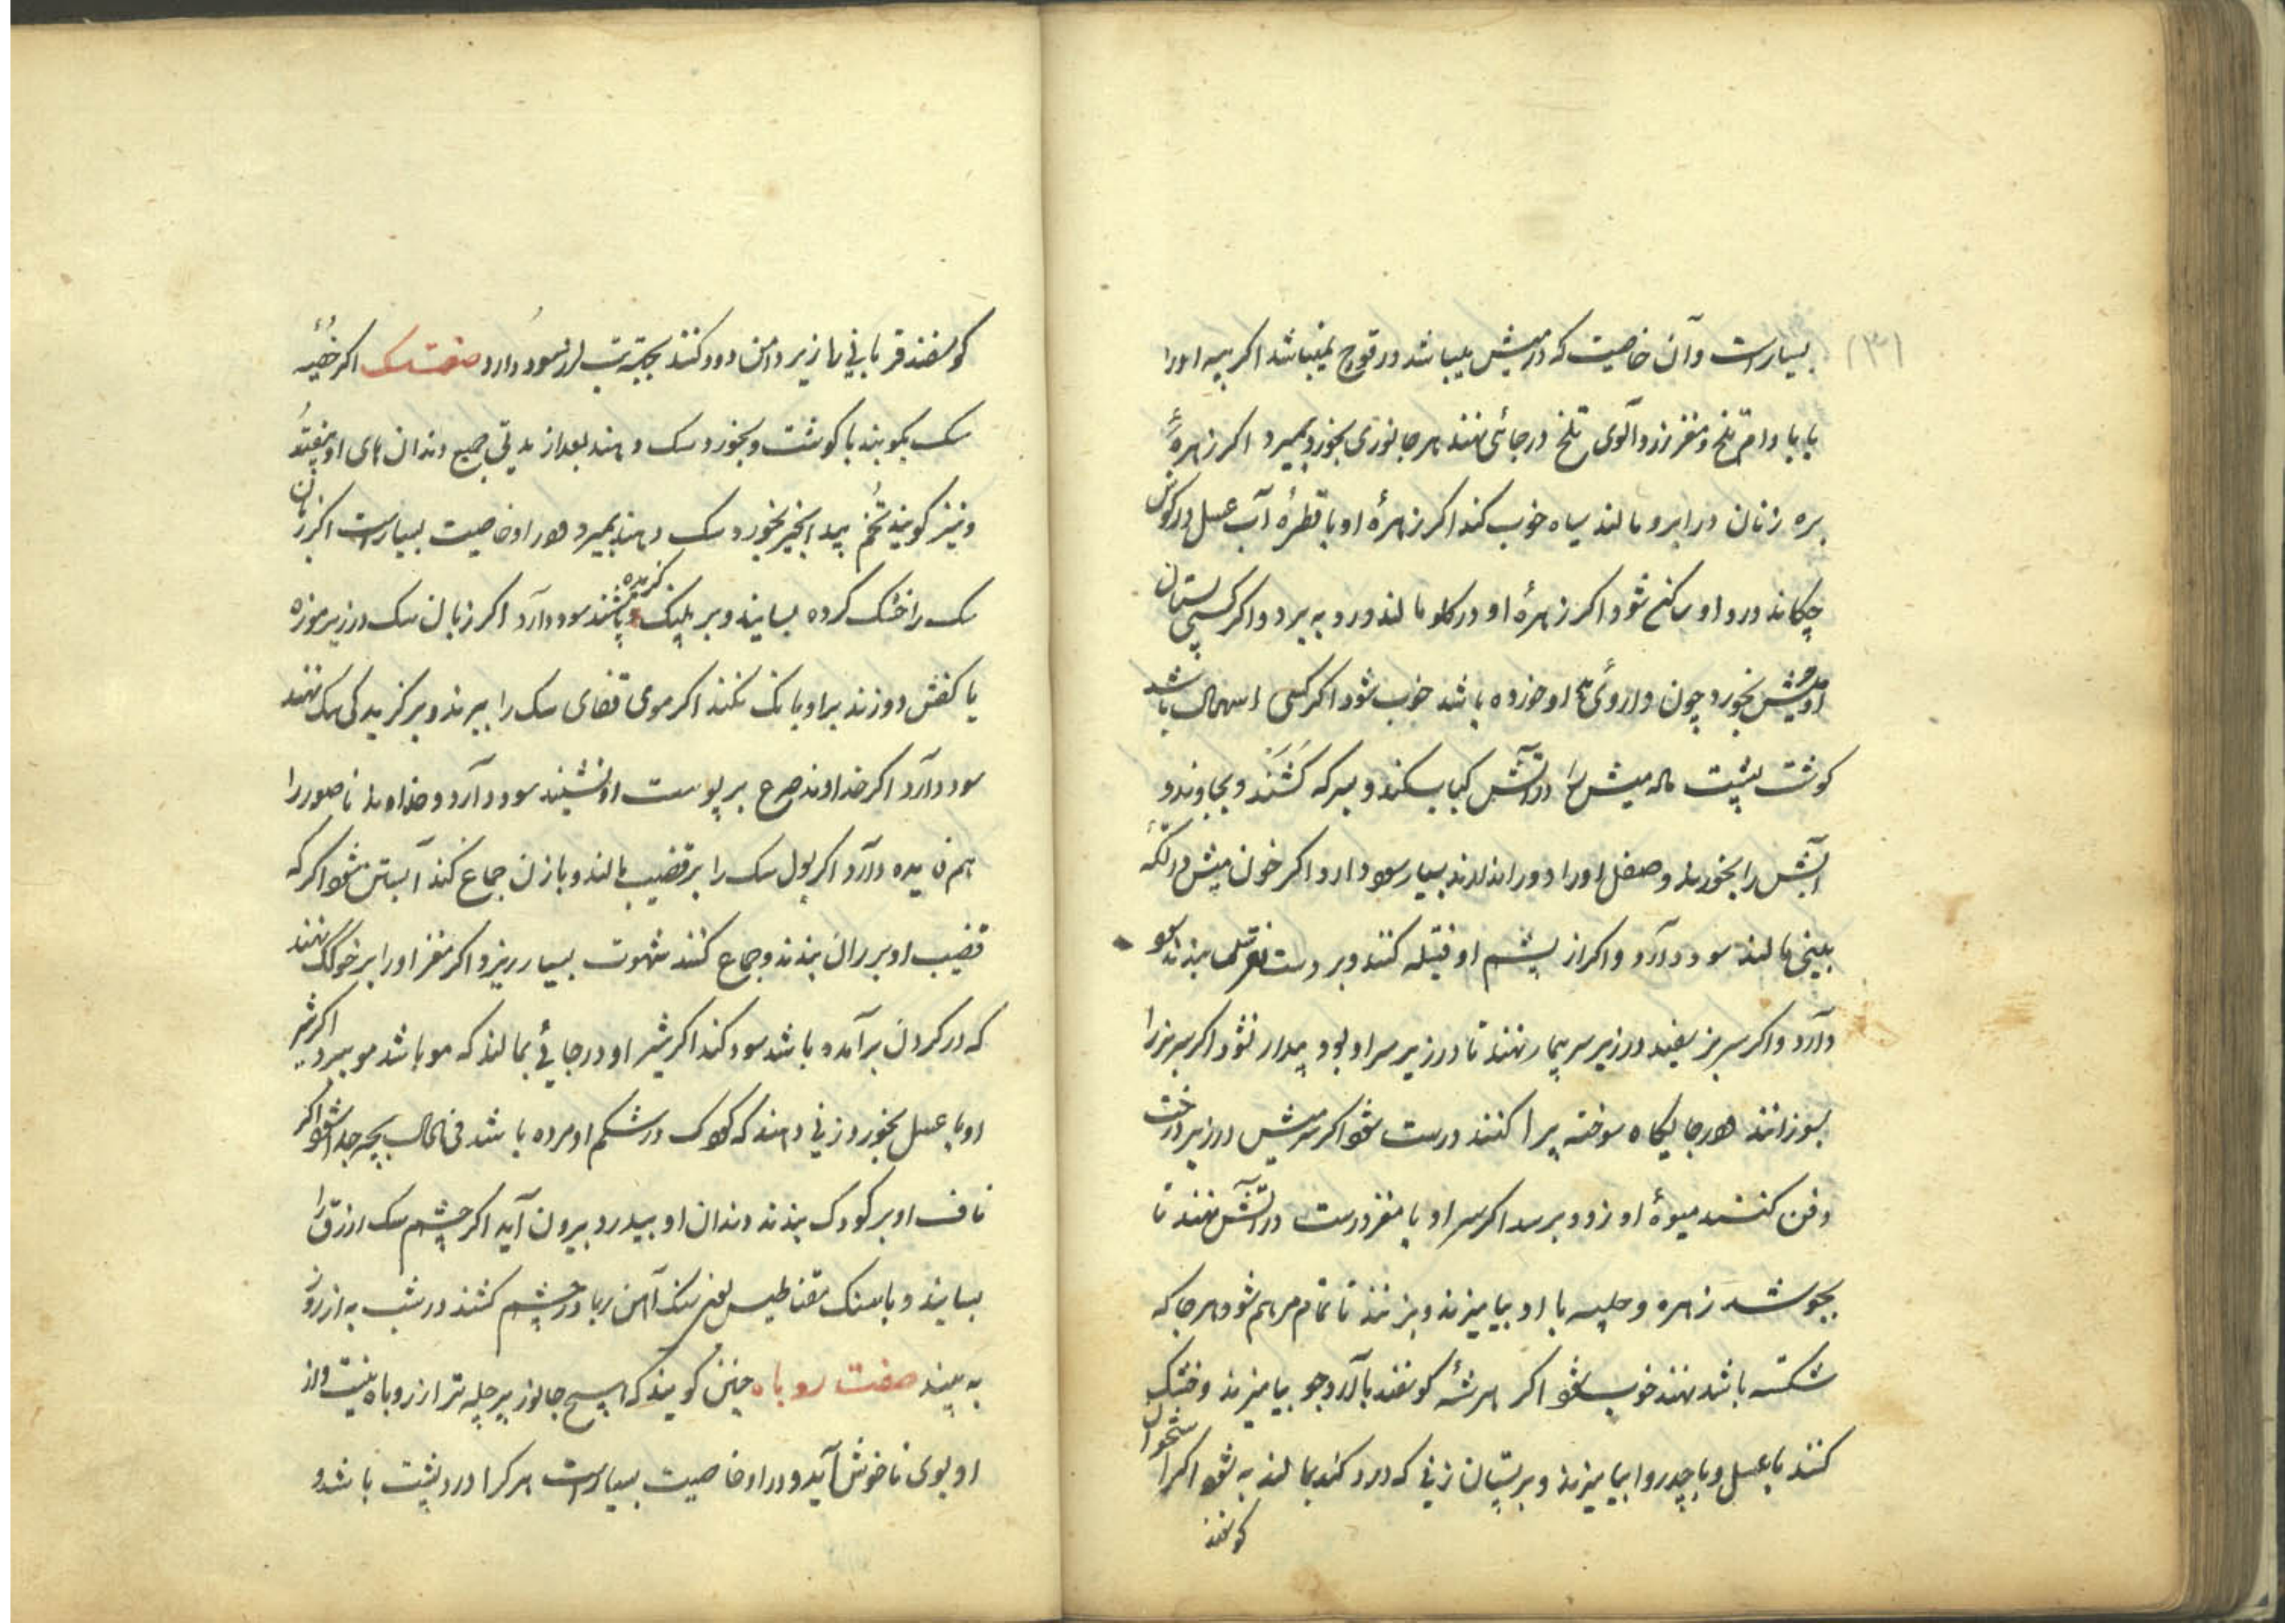 (۳۱)
بسیار است و آن خاصیت که در میش میباشد در قوچ نمیباشد اکر پیه او را
با بادام تلخ و مغز زردآلوی تلخ در جائی نهند هر جانوری بخورد بمیرد اکر زهرهٔ
بره زنان در ابرو مالند سیاه خوب کند اکر زهرهٔ او با قطرهٔ آب عسل در کوش
چکانند درد او ساکن شود اکر زهرهٔ او در کلو مالند درد به برد و اکر کسی پستان
او میش بخورد چون داروئی او خورده باشد خوب شود اکر کسی اسهال باشد
کوشت پشت ماله میش را در آتش کباب کنند و بسرکه کشند و بجاوند و
آبش را بخورند و صفل او را دور اندازند بسیار سود دارد اکر خون میش در
بینی مالند سود دارد و اکر از پشم او فتیله کنند و بر دست بندند سود
دارد و اکر سر بز سفید در زیر سر بیمار نهند تا در زیر سر او بود بیدار نشود اکر سر بز را
بسوزانند هر جایکاه سوخته پرا کنند درست شود اکر سر میش در زیر درخت
دفن کنند میوهٔ او زود برسد اکر سر او با مغز درست در آتش نهند تا
بجوشد زهره و حلبه با او بیامیزند و بزنند تا تمام مرهم شود هر جا که
شکسته باشد نهند خوب شود اکر هر شهٔ کوسفند با آرد جو بیامیزند و خشک
کنند با عسل و با جدروا بیامیزند و بر پستان زنی که درد کند بمالند به شود اکر استخوان
کوسفند
کوسفند قربانی را زیر دامن دود کنند بجهة تب لرز سود دارد صفت سک اکر خصیهٔ
سک بکوبند با کوشت و بخورد سک دهند بعد از مدتی جمیع دندان های او بیفتد
و نیز کویند تخم بید انجیر بخورد سک دهند بمیرد و در او خاصیت بسیار است اکر زبان
سک را خشک کرده بسایند و بر پلنک کزیده پاشند سود دارد اکر زبان سک در زیر موزه
یا کفش دوزند بر او بانک نکنند اکر موی قفای سک را ببرند و بر کزیدکی سک نهند
سود دارد اکر خداوند صرع بر پوست او نشیند سود دارد و خداوند ناصور را
هم فایده دارد اکر بول سک را بر قضیب مالند و با زن جماع کند آبستن شود اکر که
قضیب او بر ران بندند و جماع کنند شهوت بسیار ریزد و اکر مغز او را بر خوک نهند
که در کردن برآمده باشد سود کند اکر شیر او در جائی بمالند که مو باشد مو ببرد اکر شیر
او با عسل بخورد زنی دهند که کودک در شکم او مرده باشد فی الحال بچه جدا شود اکر
ناف او بر کودک بندند دندان او بیدرد بیرون آید اکر چشم سک ازرق را
بسایند و با سنک مقناطیس یعنی سنک آهن ربا در چشم کشند در شب به از روز
به بیند صفت روباه چنین کویند که هیچ جانور پر حیله تر از روباه نیست و از
او بوی ناخوش آید و در او خاصیت بسیار است هر کرا درد پشت باشد و